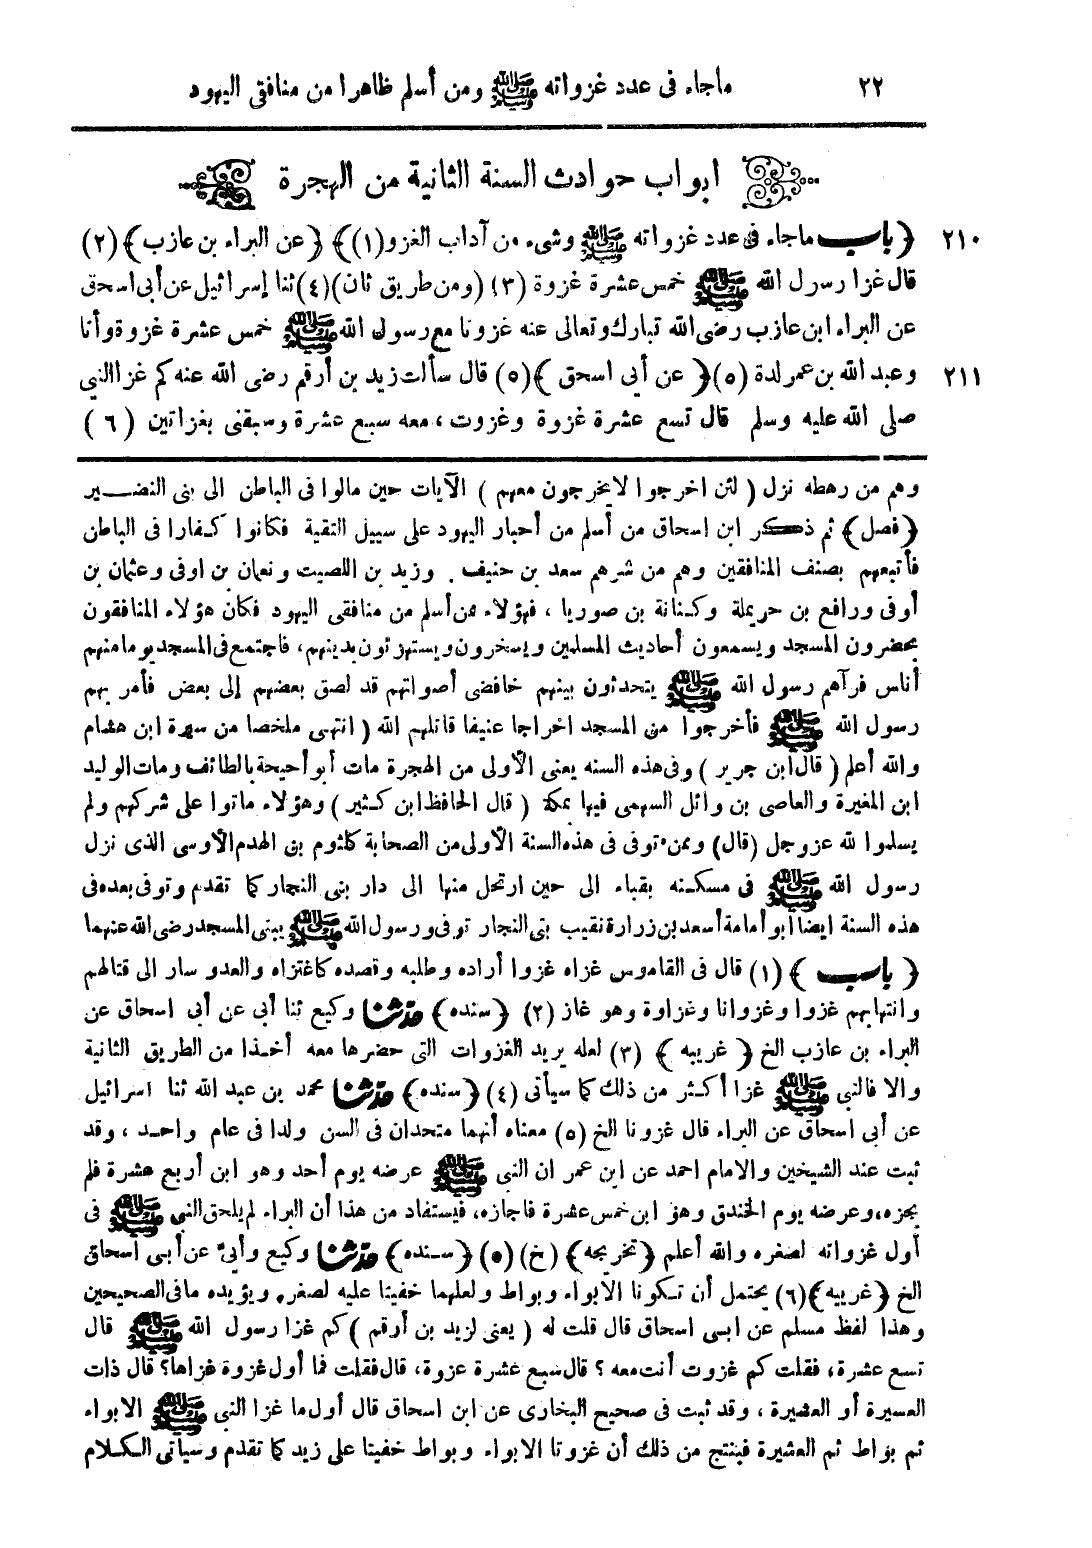 ٢٢ ماجاء فى عدد غزواته ﷺ ومن أسلم ظاهرا من منافقى اليهود
ابواب حوادث السنة الثانية من الهجرة
٢١٠ ﴿باب ماجاء فى عدد غزواته ﷺ وشىء من آداب الغزو(١)﴾ ﴿عن البراء بن عازب﴾(٢)
قال غزا رسول الله ﷺ خمس عشرة غزوة (٣) (ومن طريق ثان)(٤) ثنا إسرائيل عن أبى اسحق
عن البراء ابن عازب رضى الله تبارك وتعالى عنه غزونا مع رسول الله ﷺ خمس عشرة غزوة وأنا
٢١١ وعبد الله بن عمر لدة (٥) ﴿عن أبى اسحق﴾(٥) قال سألت زيد بن أرقم رضى الله عنه كم غزا النبي
صلى الله عليه وسلم قال تسع عشرة غزوة وغزوت ، معه سبع عشرة وسبقنى بغزاتين (٦)
وهم من رهطه نزل ( لئن اخرجوا لا يخرجون معهم ) الآيات حين مالوا فى الباطن الى بنى النضير
﴿فصل﴾ ثم ذكر ابن اسحاق من أسلم من أحبار اليهود على سبيل التقية فكانوا كفارا فى الباطن
فأتبعهم بصنف المنافقين وهم من شرهم سعد بن حنيف . وزيد بن اللصيت ونعمان بن اوفى وعثمان بن
أوفى ورافع بن حريملة وكنانة بن صوريا ، فهؤلاء ممن أسلم من منافقى اليهود فكان هؤلاء المنافقون
يحضرون المسجد ويسمعون أحاديث المسلمين ويسخرون ويستهزئون بدينهم، فاجتمع فى المسجد يوما منهم
أناس فرآهم رسول الله ﷺ يتحدثون بينهم خافضى أصواتهم قد لصق بعضهم إلى بعض فأمر بهم
رسول الله ﷺ فأخرجوا من المسجد اخراجا عنيفا قاتلهم الله ( انتهى ملخصا من سيرة ابن هشام
والله أعلم ( قال ابن جرير ) وفى هذه السنه يعنى الأولى من الهجرة مات أبو أحيحة بالطائف ومات الوليد
ابن المغيرة والعاصى بن وائل السهمى فيها بمكة ( قال الحافظ ابن كثير ) وهؤلاء ماتوا على شركهم ولم
يسلموا لله عز وجل (قال) وممن توفى فى هذه السنة الأولى من الصحابة كلثوم بن الهدم الأوسى الذى نزل
رسول الله ﷺ فى مسكنه بقباء الى حين ارتحل منها الى دار بنى النجار كما تقدم وتوفى بعده فى
هذه السنة ايضا ابو أمامة أسعد بن زرارة نقيب بنى النجار توفى ورسول الله ﷺ يبنى المسجد رضى الله عنهما
﴿باب﴾ (١) قال فى القاموس غزاه غزوا أراده وطلبه وقصده كاغتزاه والعدو سار الى قتالهم
وانتهابهم غزوا وغزوانا وغزاوة وهو غاز (٢) ﴿سنده﴾ حدثنا وكيع ثنا أبى عن أبى اسحاق عن
البراء بن عازب الخ ﴿غريبه﴾ (٣) لعله يريد الغزوات التى حضرها معه أخذا من الطريق الثانية
والا فالنبى ﷺ غزا أكثر من ذلك كما سيأتى (٤) ﴿سنده﴾ حدثنا محمد بن عبد الله ثنا اسرائيل
عن أبى اسحاق عن البراء قال غزونا الخ (٥) معناه أنهما متحدان فى السن ولدا فى عام واحد ، وقد
ثبت عند الشيخين والامام احمد عن ابن عمر ان النبى ﷺ عرضه يوم أحد وهو ابن أربع عشرة فلم
يجزه، وعرضه يوم الخندق وهو ابن خمس عشرة فاجازه، فيستفاد من هذا أن البراء لم يلحق النبى ﷺ فى
أول غزواته لصغره والله أعلم ﴿تخريجه﴾ (خ) (٥) ﴿سنده﴾ حدثنا وكيع وأبى عن أبى اسحاق
الخ ﴿غريبه﴾(٦) يحتمل أن تكونا الابواء وبواط ولعلهما خفيتا عليه لصغره ويؤيده مافى الصحيحين
وهذا لفظ مسلم عن ابى اسحاق قال قلت له ( يعنى لزيد بن أرقم ) كم غزا رسول الله ﷺ قال
تسع عشرة، فقلت كم غزوت أنت معه ؟ قال سبع عشرة غزوة، قال فقلت فما أول غزوة غزاها؟ قال ذات
العسيرة أو العشيرة ، وقد ثبت فى صحيح البخارى عن ابن اسحاق قال أول ما غزا النبى ﷺ الابواء
ثم بواط ثم العشيرة فينتج من ذلك أن غزوتا الابواء وبواط خفيتا على زيد كما تقدم وسيأتى الكلام